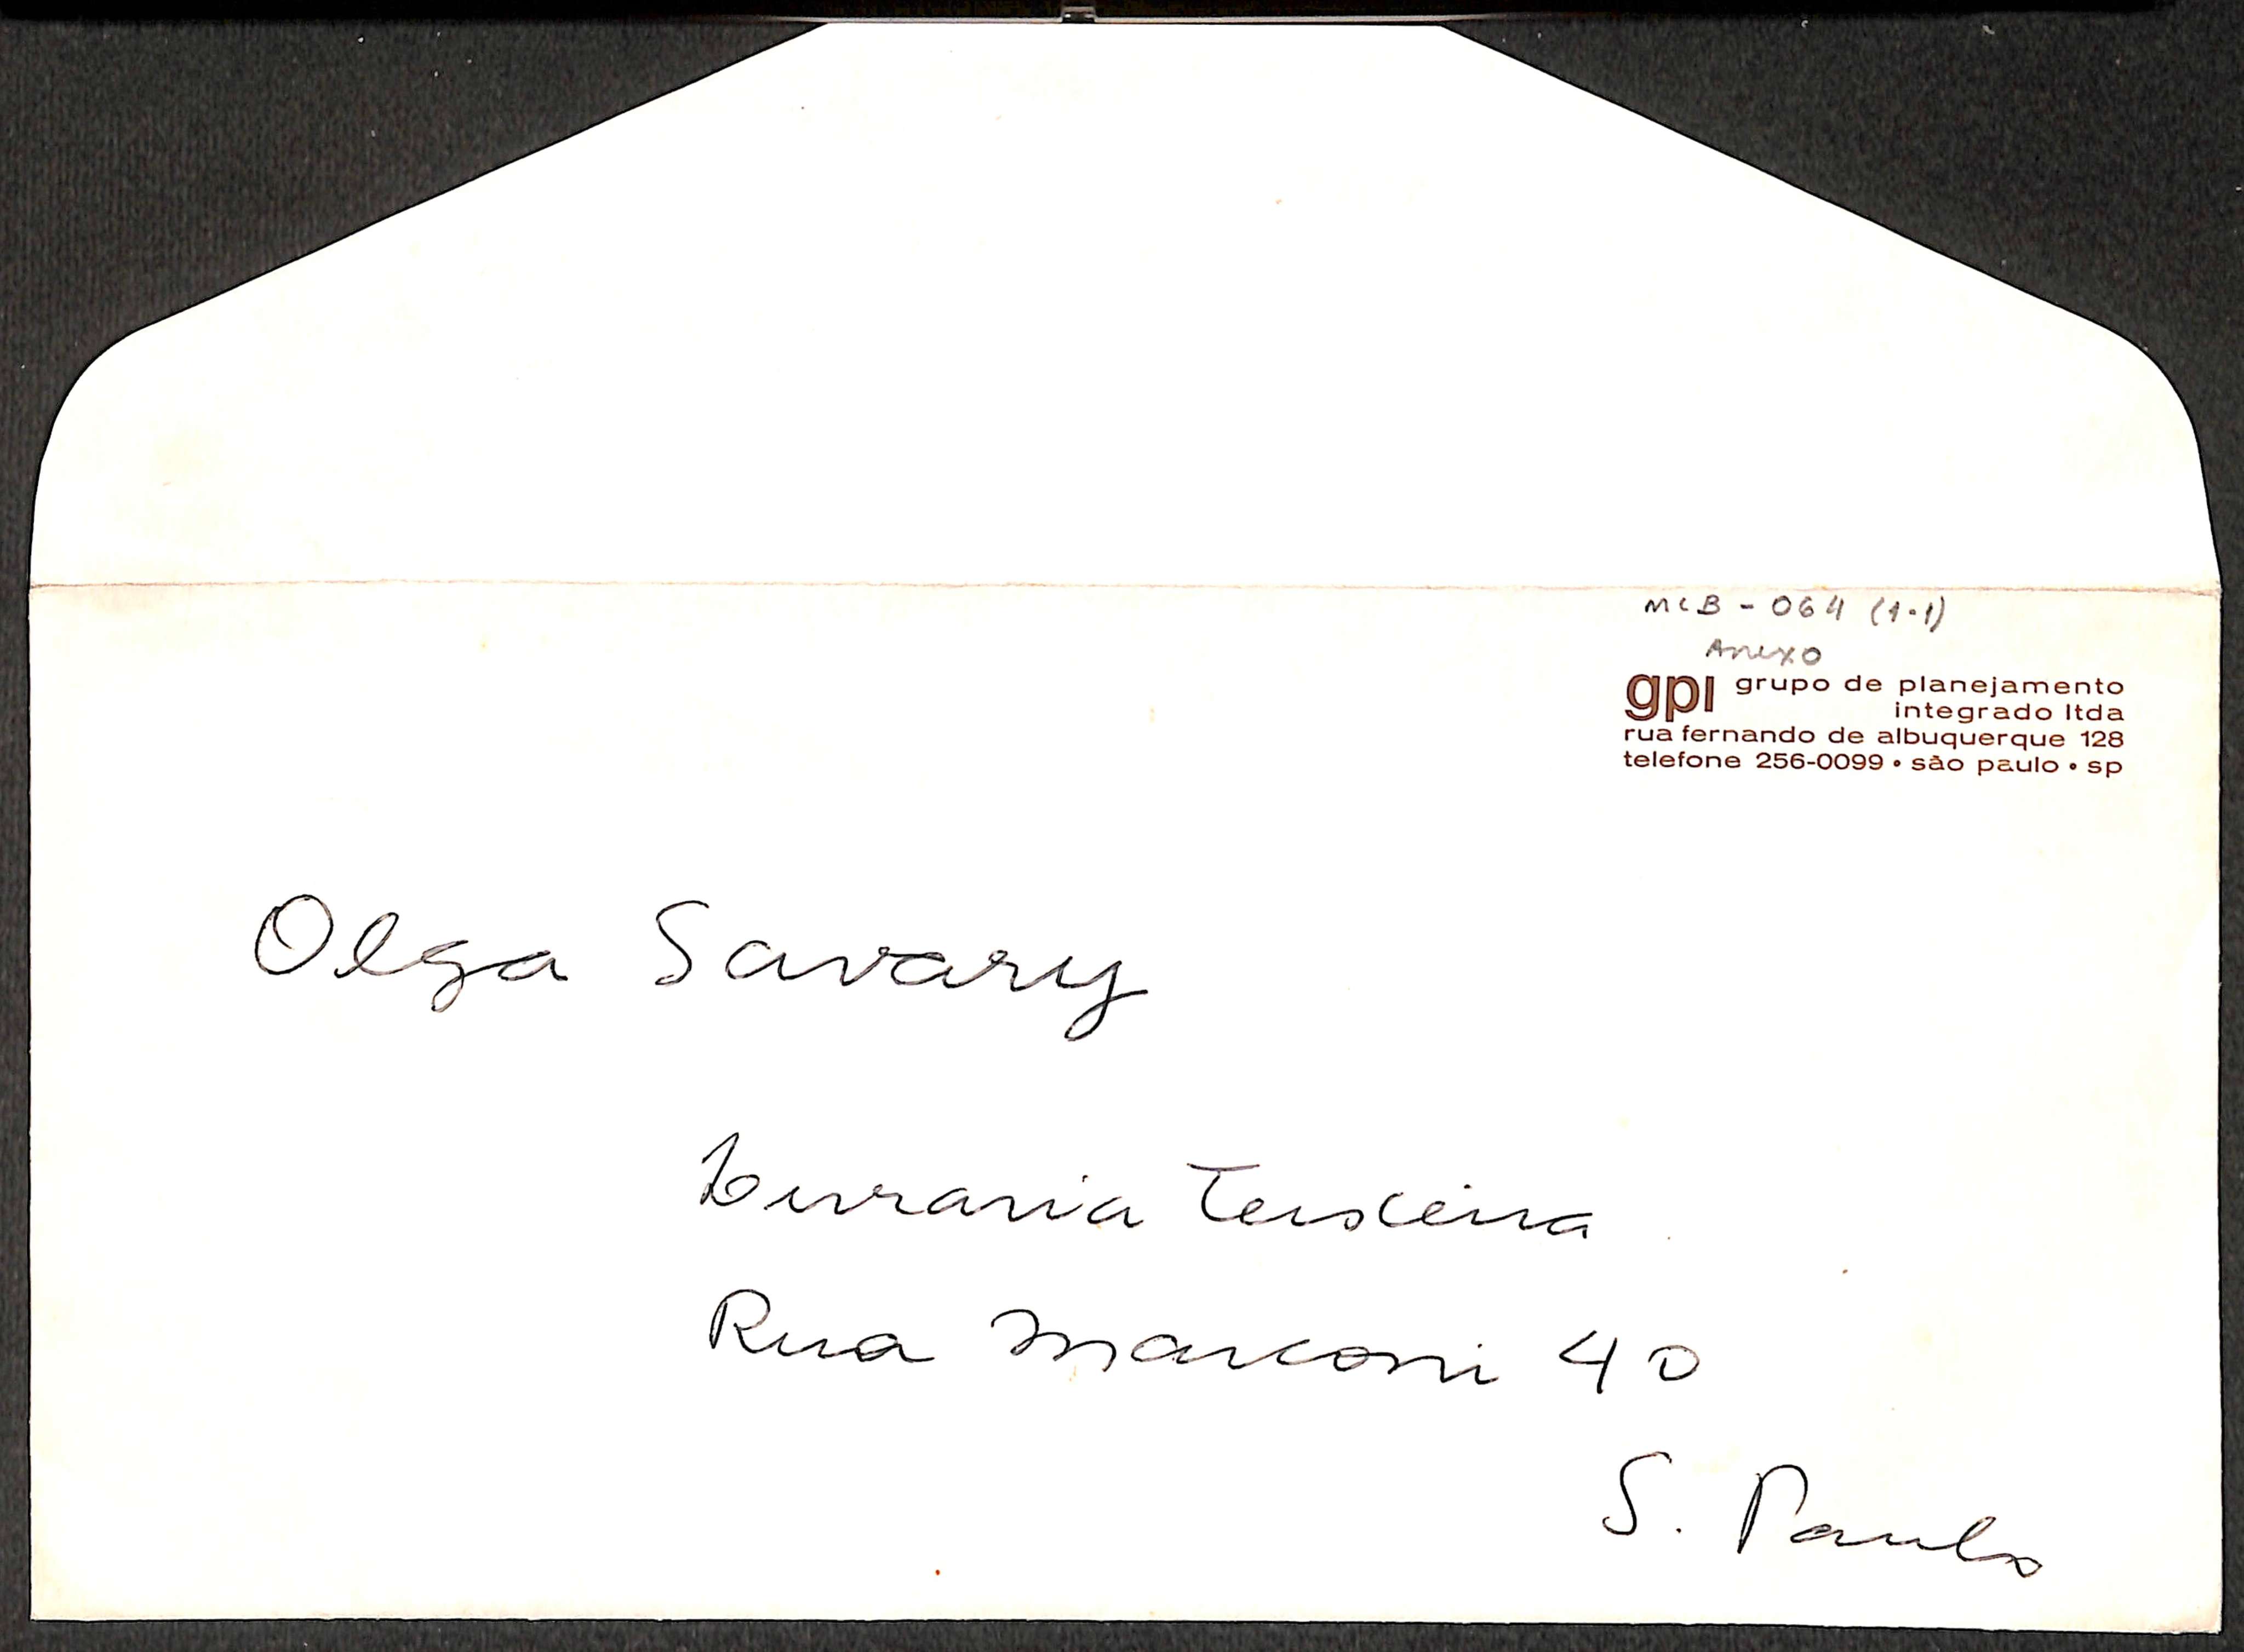 MCB - 064 (1-1)
Anexo
gpi grupo de planejamento
integrado ltda
rua fernando de albuquerque 128
telefone 256-0099 • são paulo • sp
Olga Savary
Livraria Teixeira
Rua Marconi 40
S. Paulo